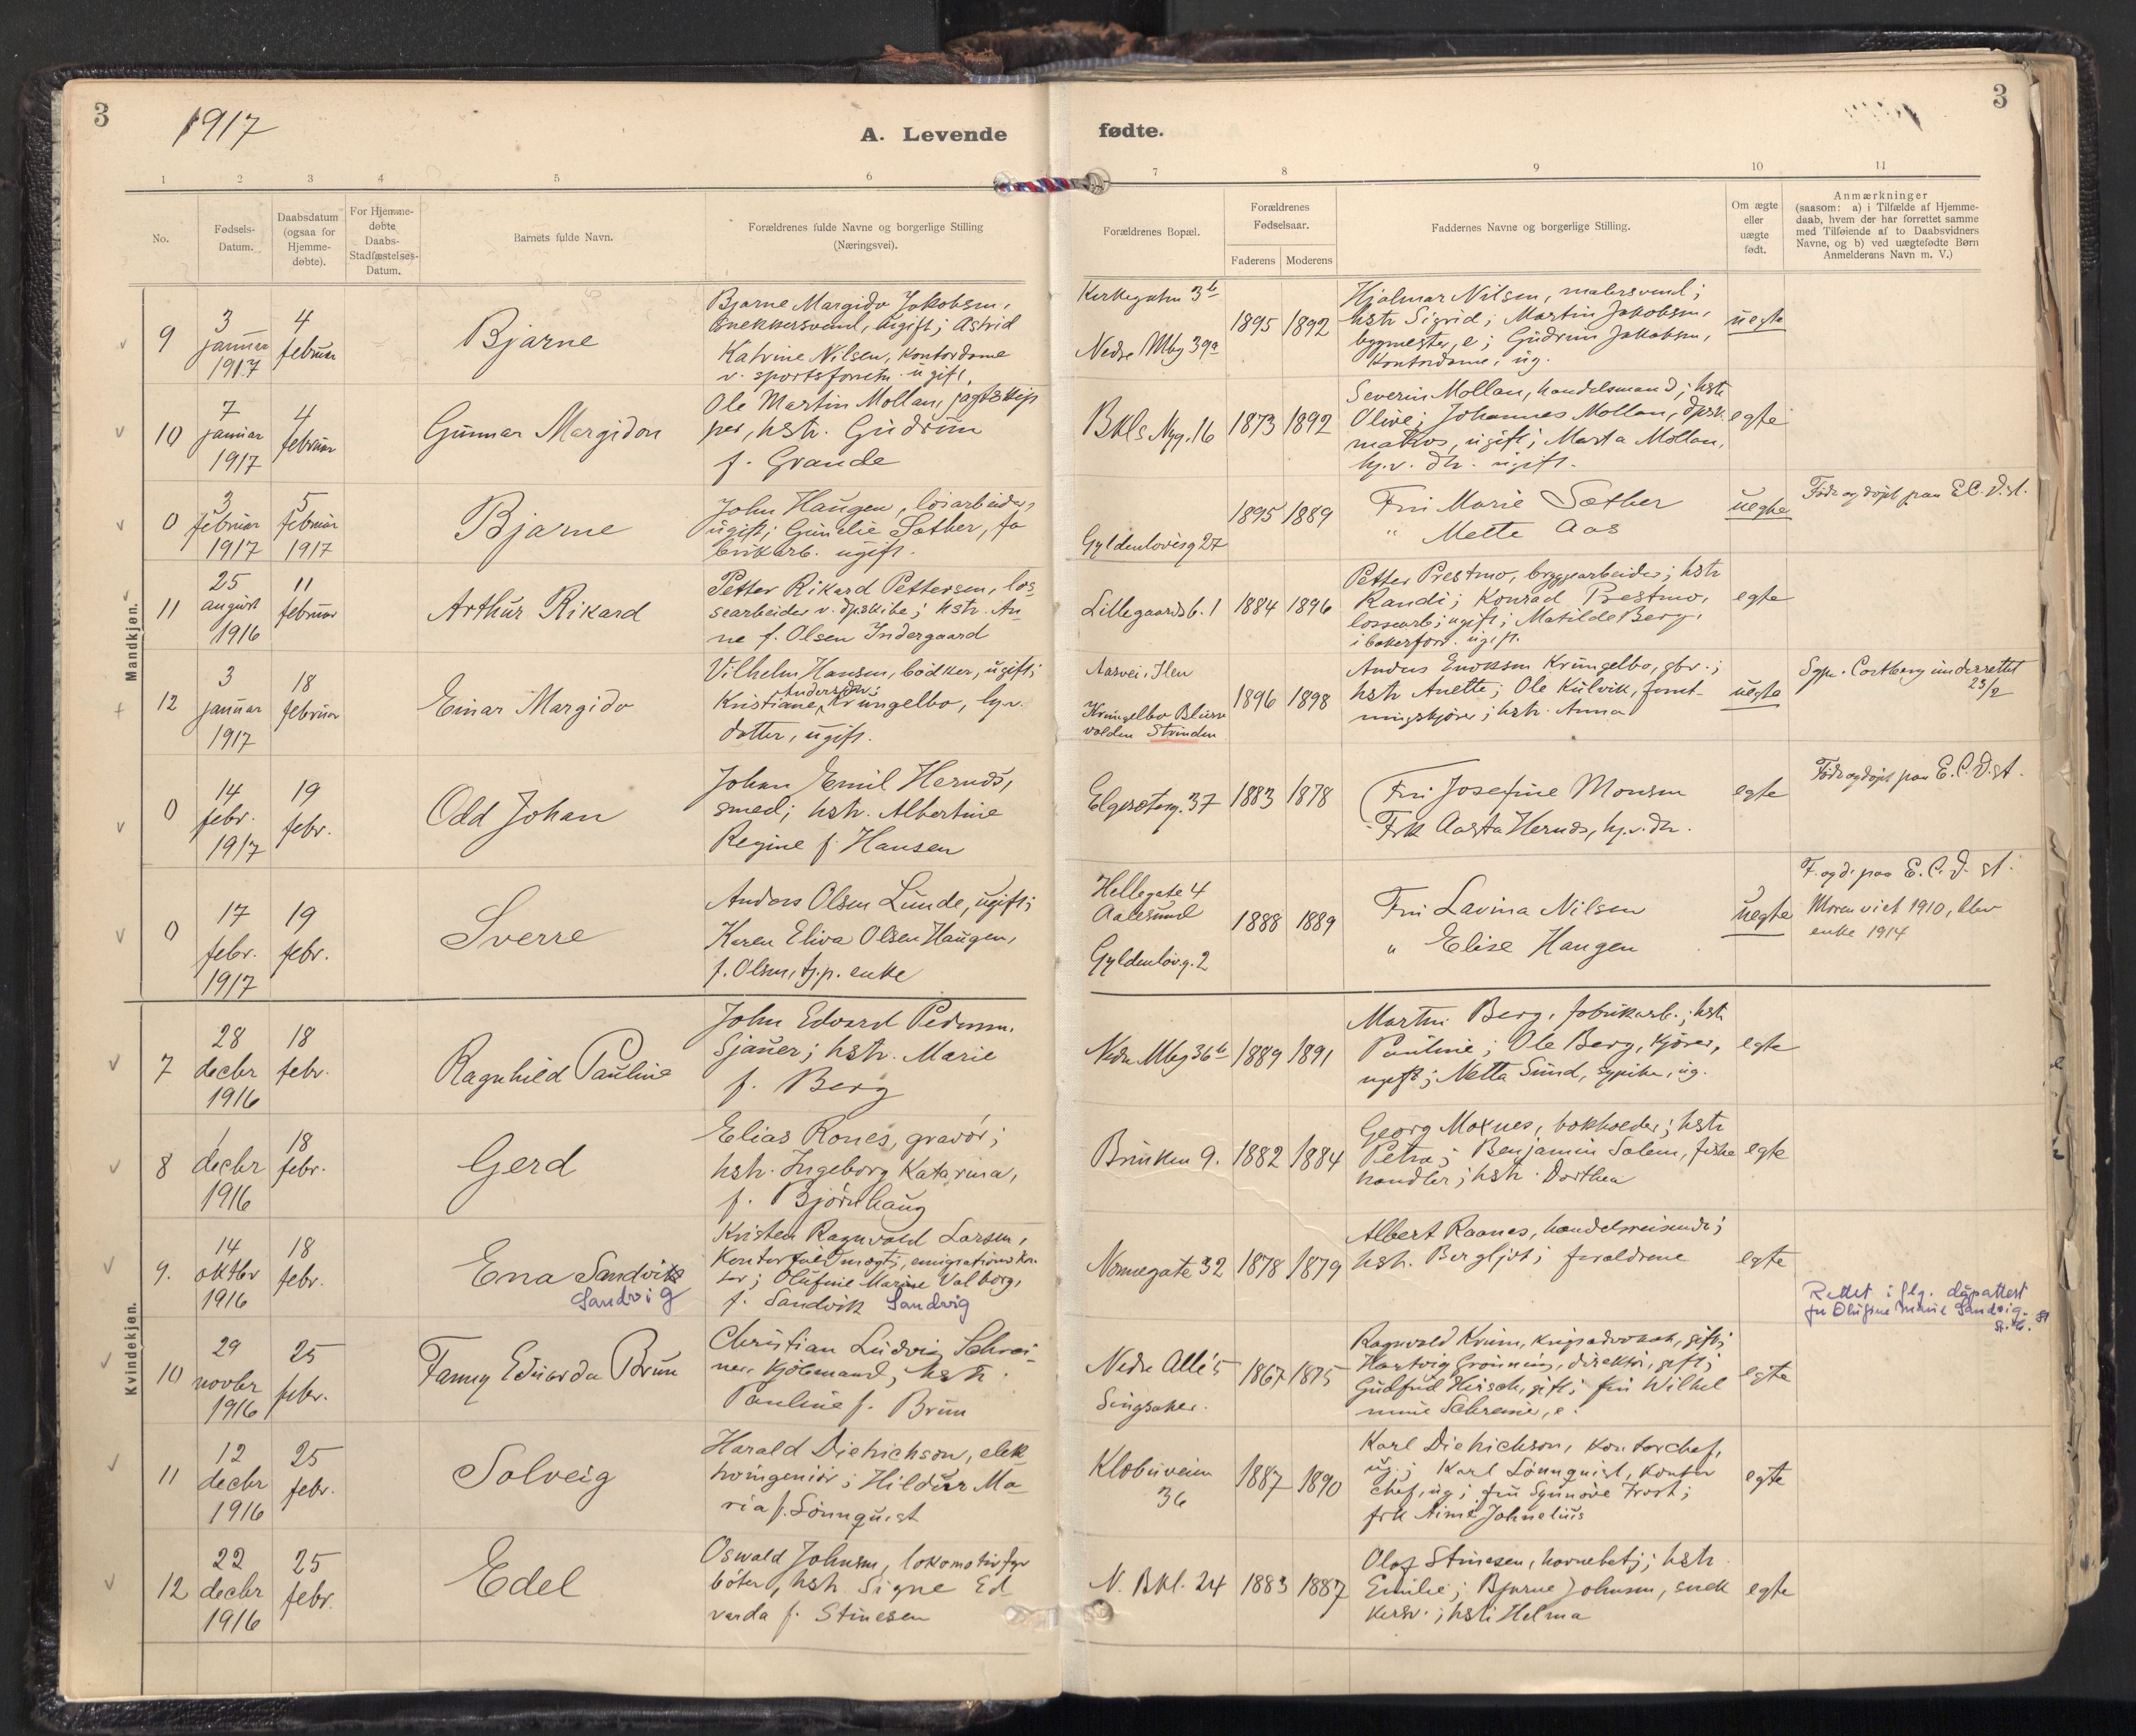 3
1917
A. Levende
fødte.
3
1
2
3
4
5
6
7
8
9
10
11
No.
Fødsels-
Datum.
Daabsdatum
(ogsaa for
Hjemme-
døbte).
For Hjemme-
døbte
Daabs-
Stadfæstelses-
Datum.
Barnets fulde Navn.
Forældrenes fulde Navne og borgerlige Stilling
(Næringsvei).
Forældrenes Bopæl.
Forældrenes
Fødselsaar.
Faderens
Moderens
Faddernes Navne og borgerlige Stilling.
Om ægte
eller
uægte
født.
Anmærkninger
(saasom: a) i Tilfælde af Hjemme-
daab, hvem der har forrettet samme
med Tilføiende af to Daabsvidners
Navne, og b) ved uægtefødte Børn
Anmelderens Navn m. V.)
Mandkjøn.
9
3
januar
1917
4
februar
Bjarne
Bjarne Margido Jakobsen,
snekkersvend, ugift; Astrid
Katrine Nilsen, kontordame
v. sportsforretn. ugift.
Kirkegaten 3b
Nedre Mbg 39a
1895
1892
Hjalmar Nilsen, malersvend;
hstr Sigrid; Martin Jakobsen,
bygmester, e; Gudrun Jakobsen,
kontordame, ug.
uegte
10
7
januar
1917
4
februar
Gunnar Margidon
Ole Martin Mollan, jagtskip
per, hstr. Gudrun
f. Grande
Bkls Nyg. 16
1873
1892
Severin Mollan, handelsmand; hstr
Olive; Johannes Mollan, dpsk.
matros, ugift; Marta Mollan,
hj.v. dtr. ugift.
egte
0
3
februar
1917
5
februar
1917
Bjarne
John Haugen, løsarbeider,
ugift; Gunelie Sæther, fa
brikarb. ugift.
Gyldenløvesg 27
1895
1889
Fru Marie Sæther
" Mette Aas
uegte
Født og døpt paa E.C.D. st.
11
25
august
1916
11
februar
Arthur Rikard
Petter Rikard Pettersen, los
searbeider v. dpskibe; hstr. An-
ne f. Olsen Indergaard
Lillegaardsb. 1
1884
1896
Petter Prestmo, bryggearbeider; hstr
Randi; Konrad Prestmo,
lossearb; ugift; Matilde Berg,
i bakerforr. ugift.
egte
12
3
januar
1917
18
februar
Einar Margido
Vilhelm Hansen, bødker, ugift;
Andersdtr;
Kristiane Krüngelbo, hj.v.
datter, ugift.
Aasvei, Ilen
Krüngelbo
Strinden
1896
1898
Anders Enoksen Krüngelbo, gbr.;
hstr Anette; Ole Kulvik,
hstr. Anna
uegte
underrettet
23/2
0
14
febr.
1917
19
febr.
Odd Johan
Johan Emil Hernes,
smed; hstr. Albertine
Regine f. Hansen
Elgeseterg. 37
1883
1878
Fru Josefine Monsen
Frk Aasta Hernes, hj.v.dtr.
egte
Født og døpt paa E.C.D. st.
0
17
febr.
1917
19
febr.
Sverre
Anders Olsen Lunde, ugift;
Karen Eliva Olsen Haugen,
f. Olsen, tj.p. enke
Hellegate 4
Aalesund
Gyldenløv.g. 2
1888
1889
Fru Lavina Nilsen
" Elise Haugen
uegte
F. og d. paa E.C.D. st.
Moren viet 1910, blev
enke 1914
Kvindekjøn.
7
28
decbr
1916
18
febr.
Ragnhild Pauline
John Edvard Pedersen,
sjauer; hstr. Marie
f. Berg
Nedre Mbg 36b
1889
1891
Martin Berg, fabrikarb.; hstr
Pauline; Ole Berg, kjører,
ugift; Netta Sund, sypike, ug.
egte
8
1
decbr
1916
18
febr.
Gerd
Elias Rones, gravør;
hstr. Ingeborg Katarina,
f. Bjørnhaug
Brinken 9.
1882
1884
Georg Moxnes, bokholder; hstr
Petra; Benjamin Solem, fiske
handler; hstr. Dorthea
egte
9.
14
oktbr
1916
18
febr.
Ena Sandvik
Sandvig
Kristen Ragnvald Larsen,
kontorfuldmægt; emigrationskon-
tor; Olufine Marine Valborg,
f. Sandvik Sandvig
Nonnegate 32
1878
1879
Albert Raanes, handelsreisende;
hstr. Bergljot; forældrene
egte
Rettet i flg. dåpattest
for Olufine Marie Sandvig.
10
29
novbr
1916
25
febr.
Fanny Eduarda Brun
Christian Ludvig Schrei-
ner, kjøbmand; hstr.
Pauline f. Brun
Nedre Allé 5
Singsaker.
1867
1875
Ragnvald Krum, krigsadvokat, gift;
Hartvig Grønning, direktør, gift;
Gudfrid Hirsch, gift; fru Wilhel
mine Schreiner, e.
egte
11
12
decbr
1916
25
febr.
Solveig
Harald Dietrichson, elek
troingeniør; Hildur Ma-
ria f. Sønnquist
Klæbuveien
36
1887
1890
Karl Dietrichson, kontorchef,
ug.; Karl Lønnquist, kontor
chef, ug; fru Synnøve Trost;
frk Aimé Johnelius
egte
12
22
decbr
1916
25
febr.
Edel
Oswald Johnsen, lokomotivfyr
bøter, hstr Signe Ed
varda f. Stinesen
N. Bkl. 24
1883
1887
Olaf Stinesen, havnebetj; hstr.
Emilie; Bjarne Johnsen, snek
kersv.; hstr Helma
egte